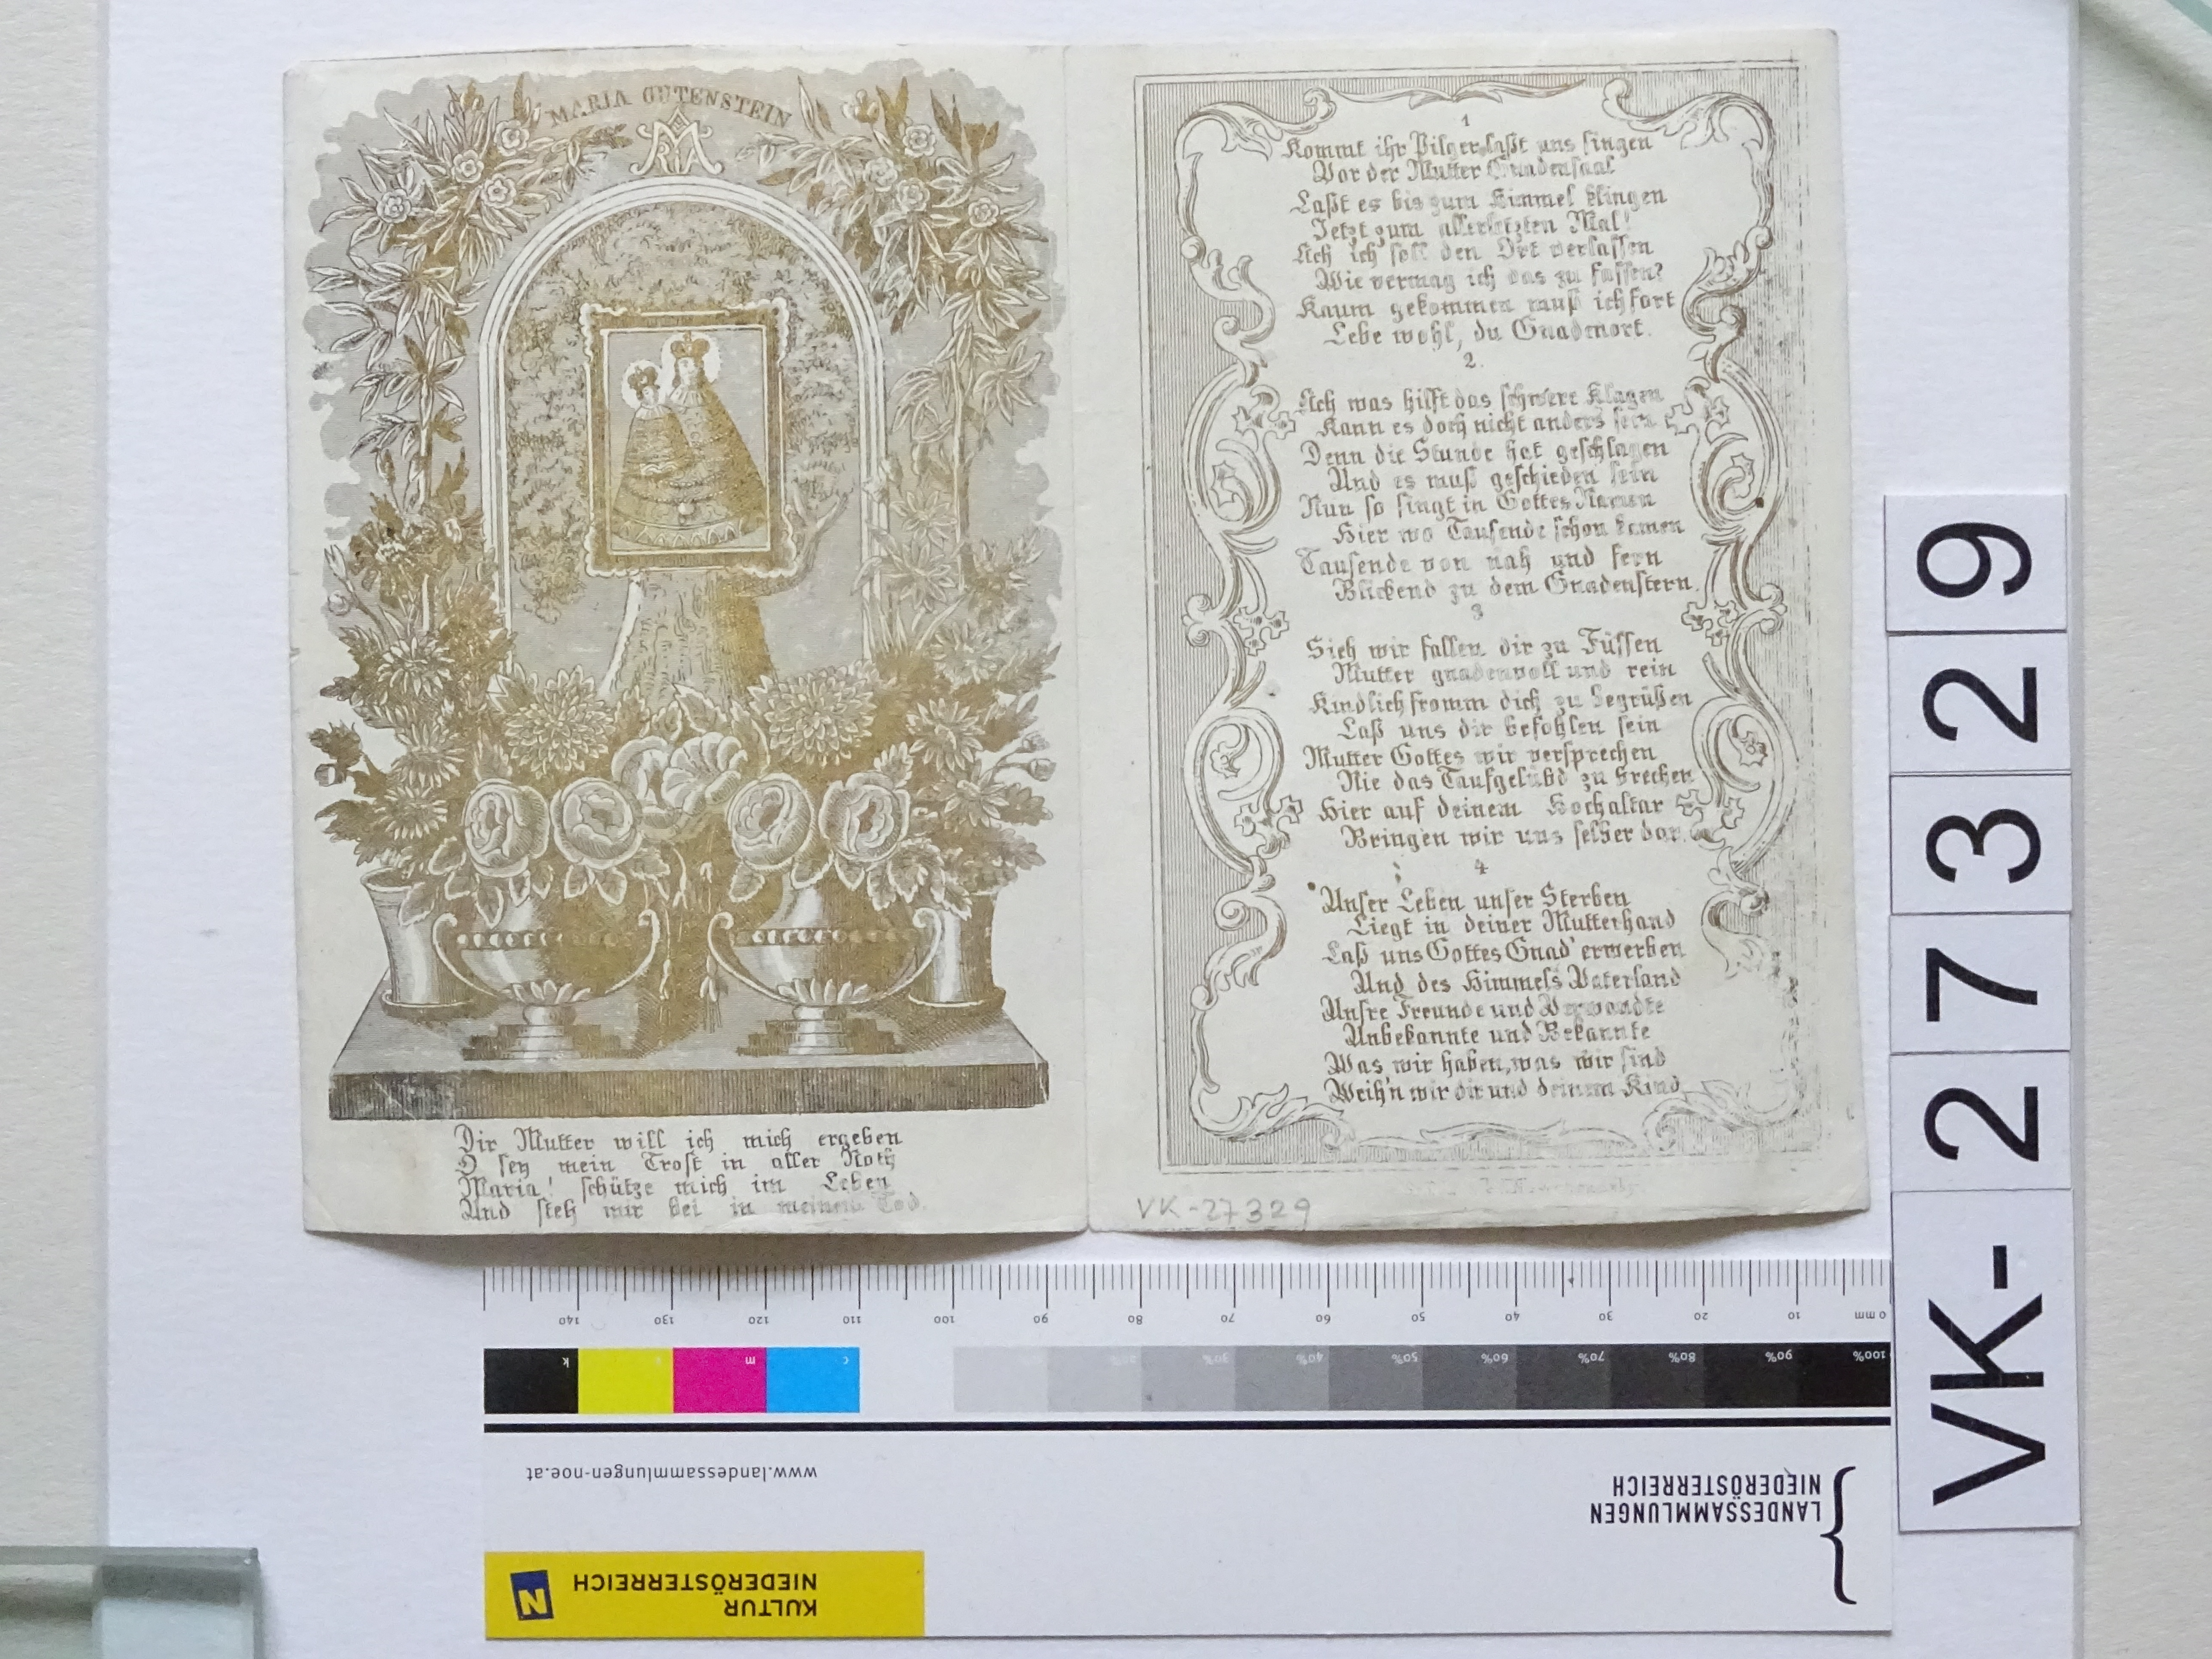 MARIA GUTENSTEIN
MARIA
Dir Mutter will ich mich ergeben
O sey mein Trost in aller Noth
Maria! schütze mich im Leben
Und steh mir bei in meinem Tod.
1
Kommt ihr Pilger laßt uns singen
Vor der Mutter Gnadensaal
Laßt es bis zum Himmel klingen
Jetzt zum allerletzten Mal!
Ach ich soll den Ort verlassen
Wie vermag ich das zu fassen?
Kaum gekommen muß ich fort
Lebe wohl, du Gnadenort.
2.
Ach was hilft das schwere Klagen
Kann es doch nicht anders sein
Denn die Stunde hat geschlagen
Und es muß geschieden sein
Nun so singt in Gottes Namen
Hier wo Tausende schon kamen
Tausende von nah und fern
Blickend zu dem Gnadenstern.
3
Sieh wir fallen dir zu Füssen
Mutter gnadenvoll und rein
Kindlich fromm dich zu begrüßen
Laß uns dir befohlen sein
Mutter Gottes wir versprechen
Nie das Taufgelübd zu brechen
Hier auf deinem Hochaltar
Bringen wir uns selber dar.
4
Unser Leben unser Sterben
Liegt in deiner Mutterhand
Laß uns Gottes Gnad' erwerben
Und des Himmels Vaterland
Unsre Freunde und Verwandte
Unbekannte und Bekannte
Was wir haben, was wir sind
Weih'n wir dir und deinem Kind
VK-27329
VK-27329
140 130 120 110 100 90 80 70 60 50 40 30 20 10 0 mm
k y m c 20% 30% 40% 50% 60% 70% 80% 90% 100%
www.landessammlungen-noe.at
LANDESSAMMLUNGEN
NIEDERÖSTERREICH
KULTUR
NIEDERÖSTERREICH
N